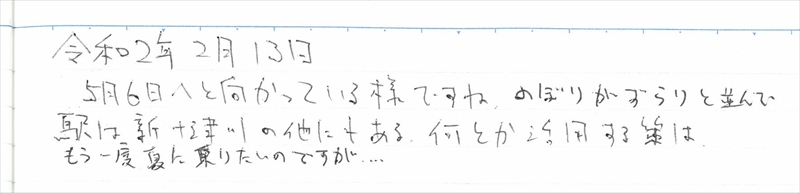 令和2年2月13日
5月6日へと向かっている様ですね。のぼりがずらりと並んで
駅は新十津川の他にもある。何とか活用する策は。
もう一度夏に乗りたいのですが…